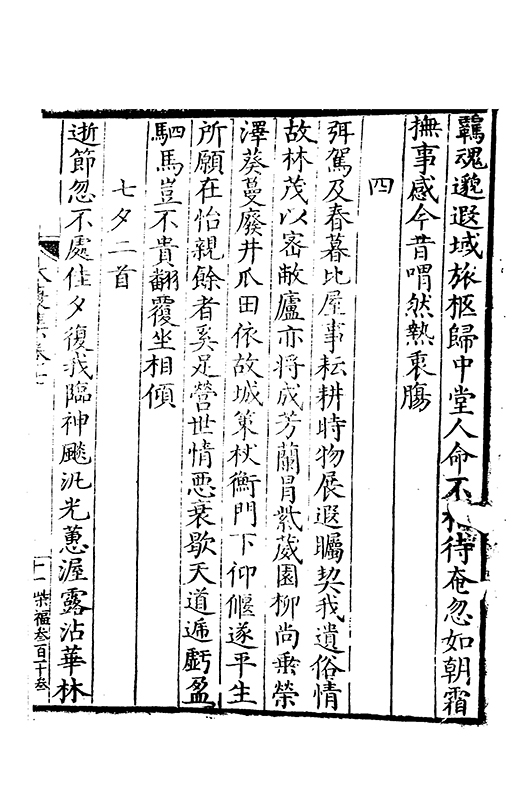 羈魂邈遐域旅柩歸中堂人命不相待奄忽如朝霜
撫事感今昔喟然熱衷腸
四
弭駕及春暮比屋事耘耕時物展遐矚契我遺俗情
故林茂以密敝廬亦將成芳蘭冒紫葳園柳尚垂榮
澤葵蔓廢井瓜田依故城策杖衡門下仰偃遂平生
所願在怡親餘者奚足營世情惡衰歇天道遞虧盈
駟馬豈不貴翻覆坐相傾
七夕二首
逝節忽不處佳夕復我臨神飈汎光蕙渥露沾華林
十一
柴福叁百二十叁